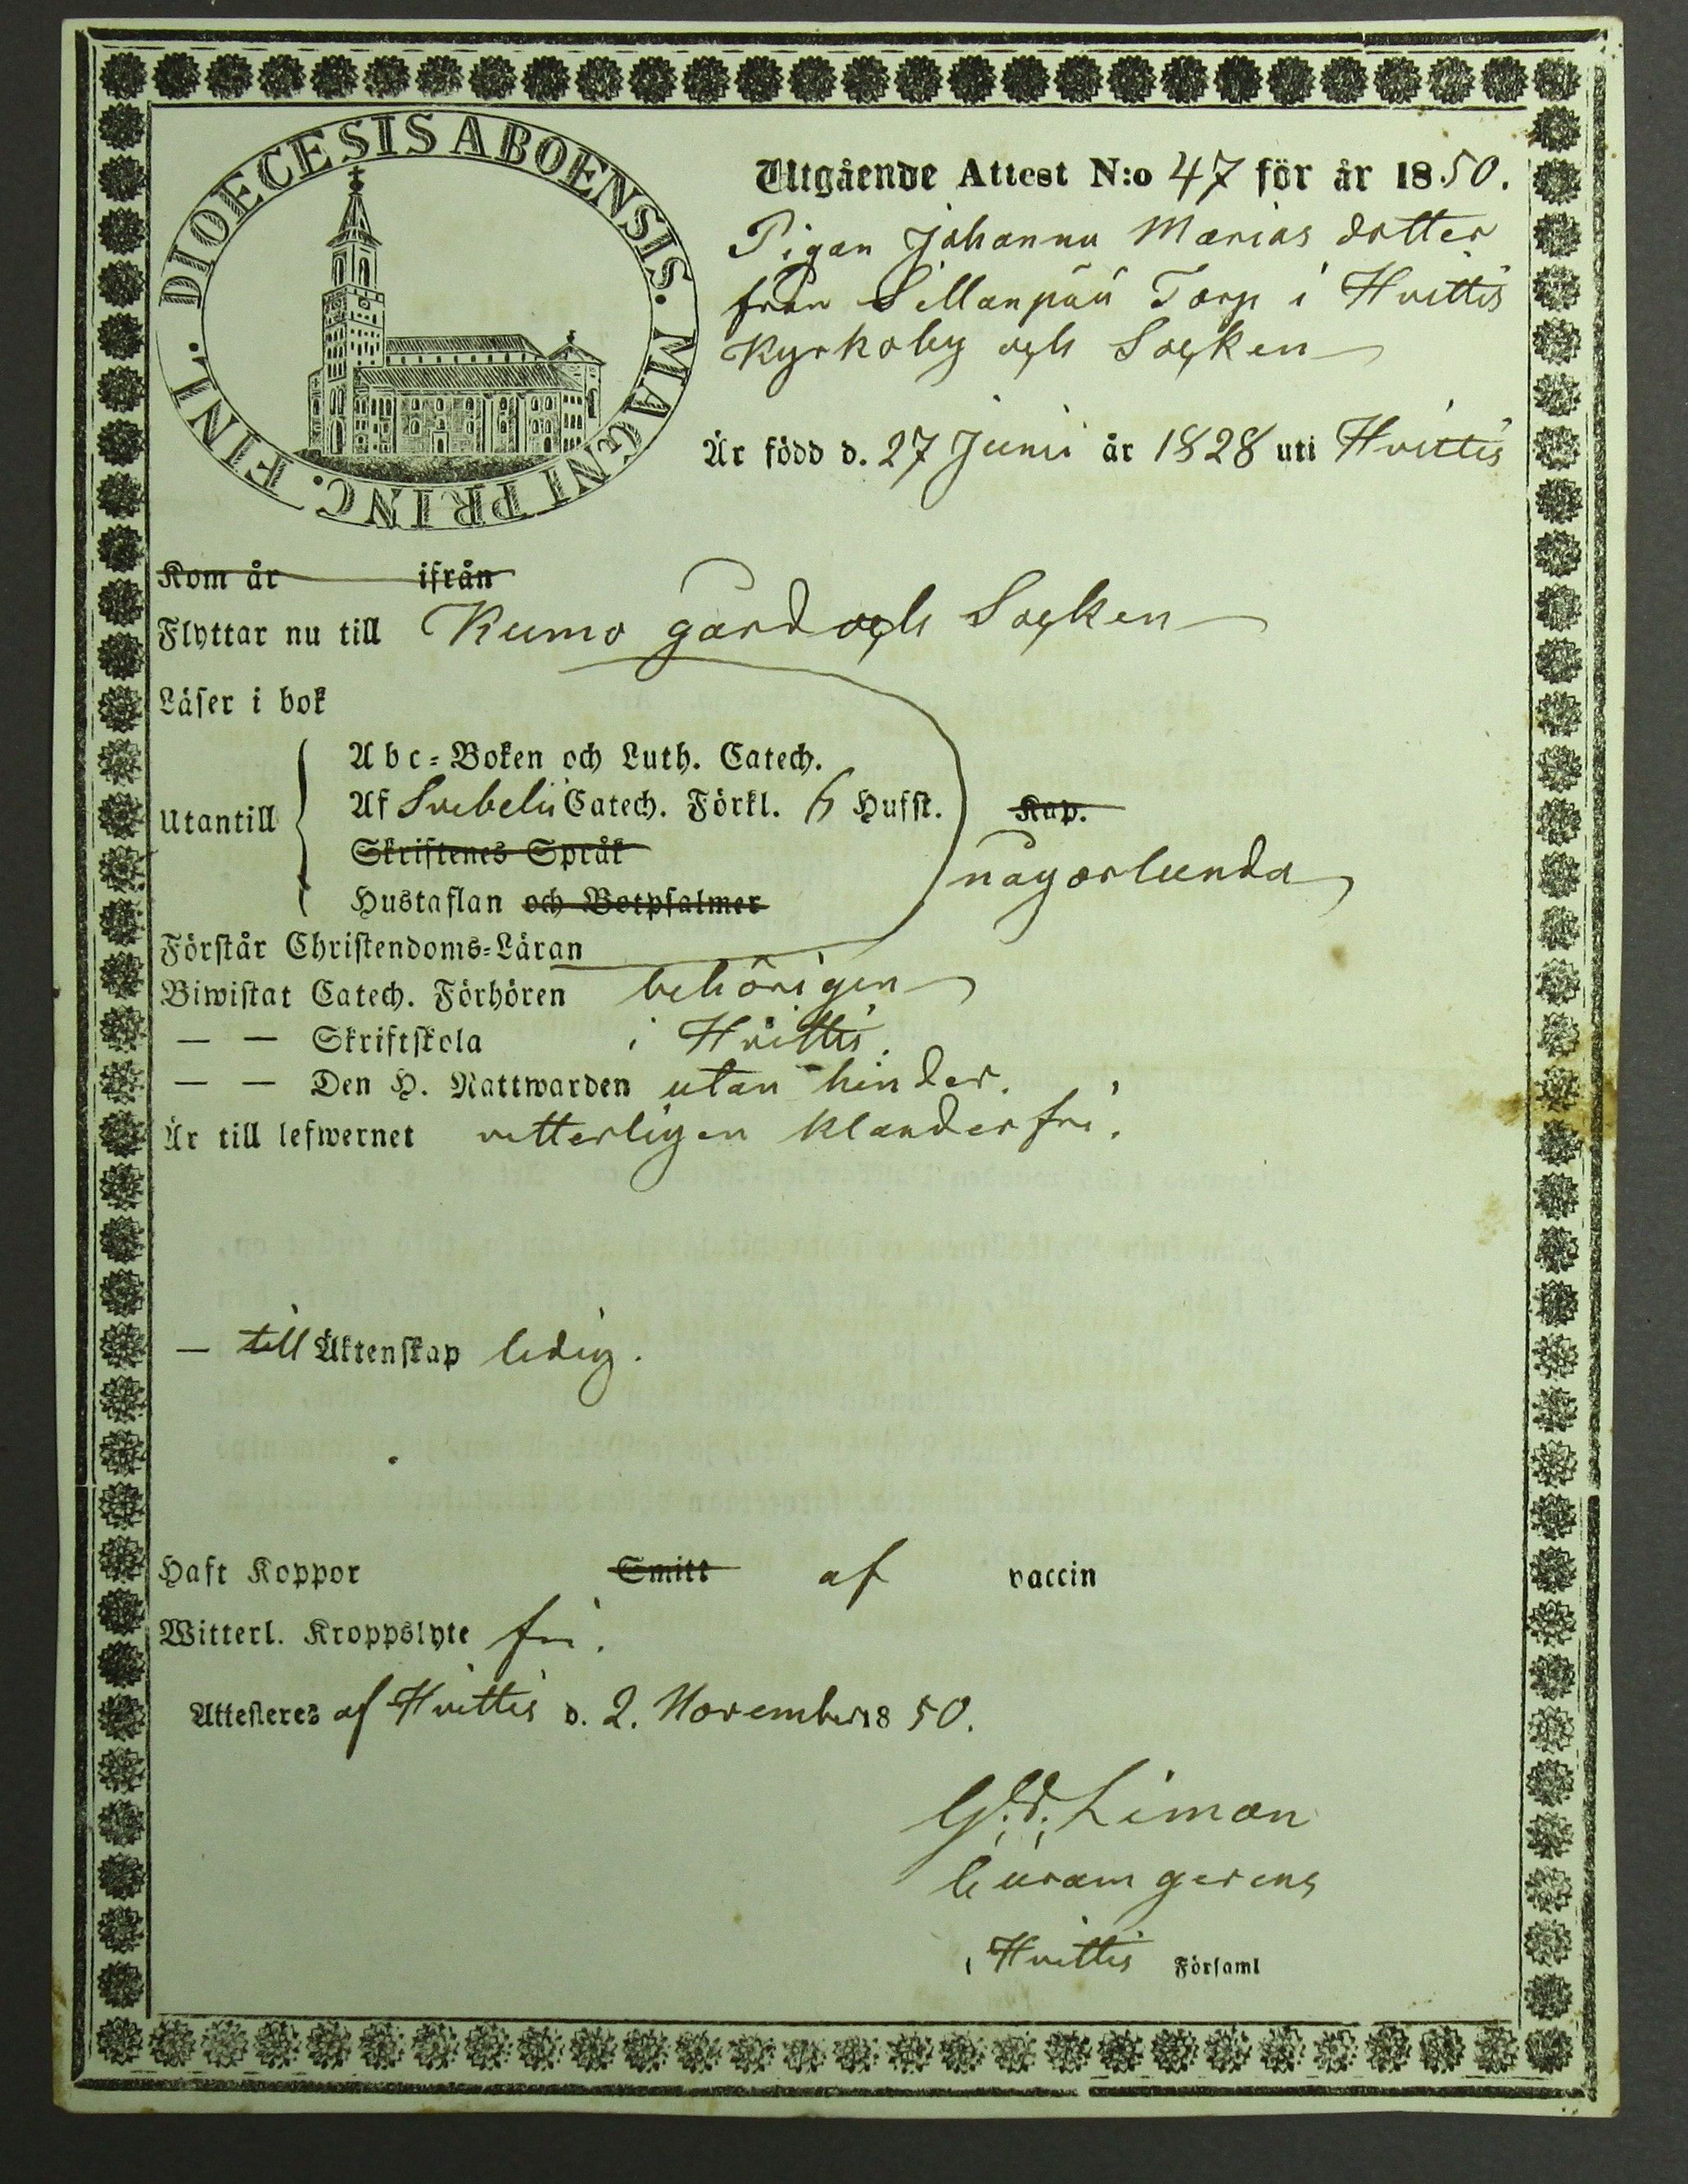 DIOECESIS ABOENSIS. MAGNI PRINC. FINL.
Utgående Attest N:o 47 för år 1850.
Pigan Johanna Marias dotter
från Sillanpää Torp i Hvittis
Kyrkoby och Socken
Är född d. 27 Junii år 1828 uti Hvittis
Kom år ifrån
Flyttar nu till Kumo gård och Socken
Läser i bok
Utantill
Abc-Boken och Luth. Catech.
Af Svebelii Catech. Förkl. 6 Hufst. Kap.
Skriftenes Språk
någorlunda
Hustaflan och Botpsalmer
Förstår Christendoms-Läran
Biwistat Catech. Förhören behörigen
— — Skriftskola i Hvittis.
— — Den H. Nattwarden utan hinder.
Är till lefwernet vetterligen klanderfri.
— till Äktenskap ledig.
Haft Koppor Smitt af vaccin
Witterl. Kroppslyte fri.
Attesteres af Hvittis d. 2. November 1850.
Limon
Curam gerens
i Hvittis Församl